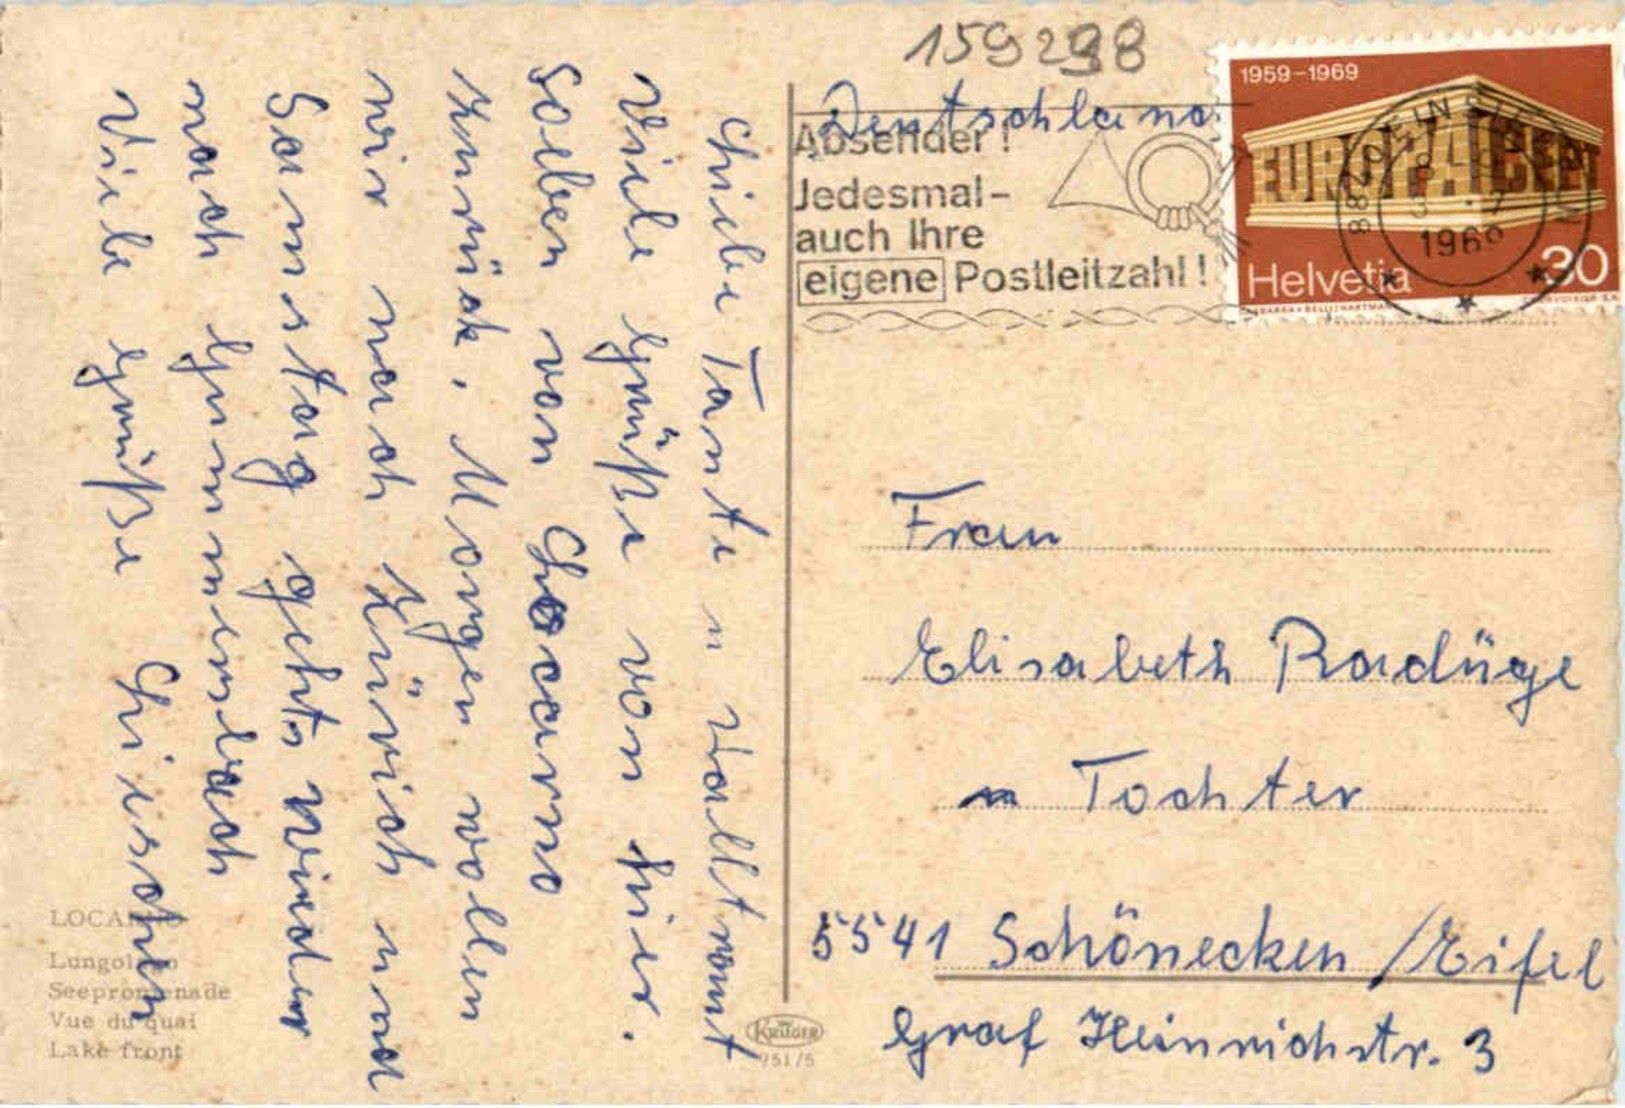 159298
Liebe Tante u Walltraut
Viele Grüße von hier.
Soeben von Locarno
zurück. Morgen wollen
wir nach Zürich und
Samstag gehts wieder
nach Gummersbach
Viele Grüße Lieschen
Deutschland
Absender!
Jedesmal-
auch Ihre
eigene Postleitzahl!
1959-1969
EUROPA CEPT
Helvetia 30
8840 EINSIEDELN
1969
Frau
Elisabeth Radüge
u Tochter
5541 Schönecken / Eifel
Graf Heinrichstr. 3
LOCARNO
Lungolago
Seepromenade
Vue du quai
Lake front
KRÜGER
951/5